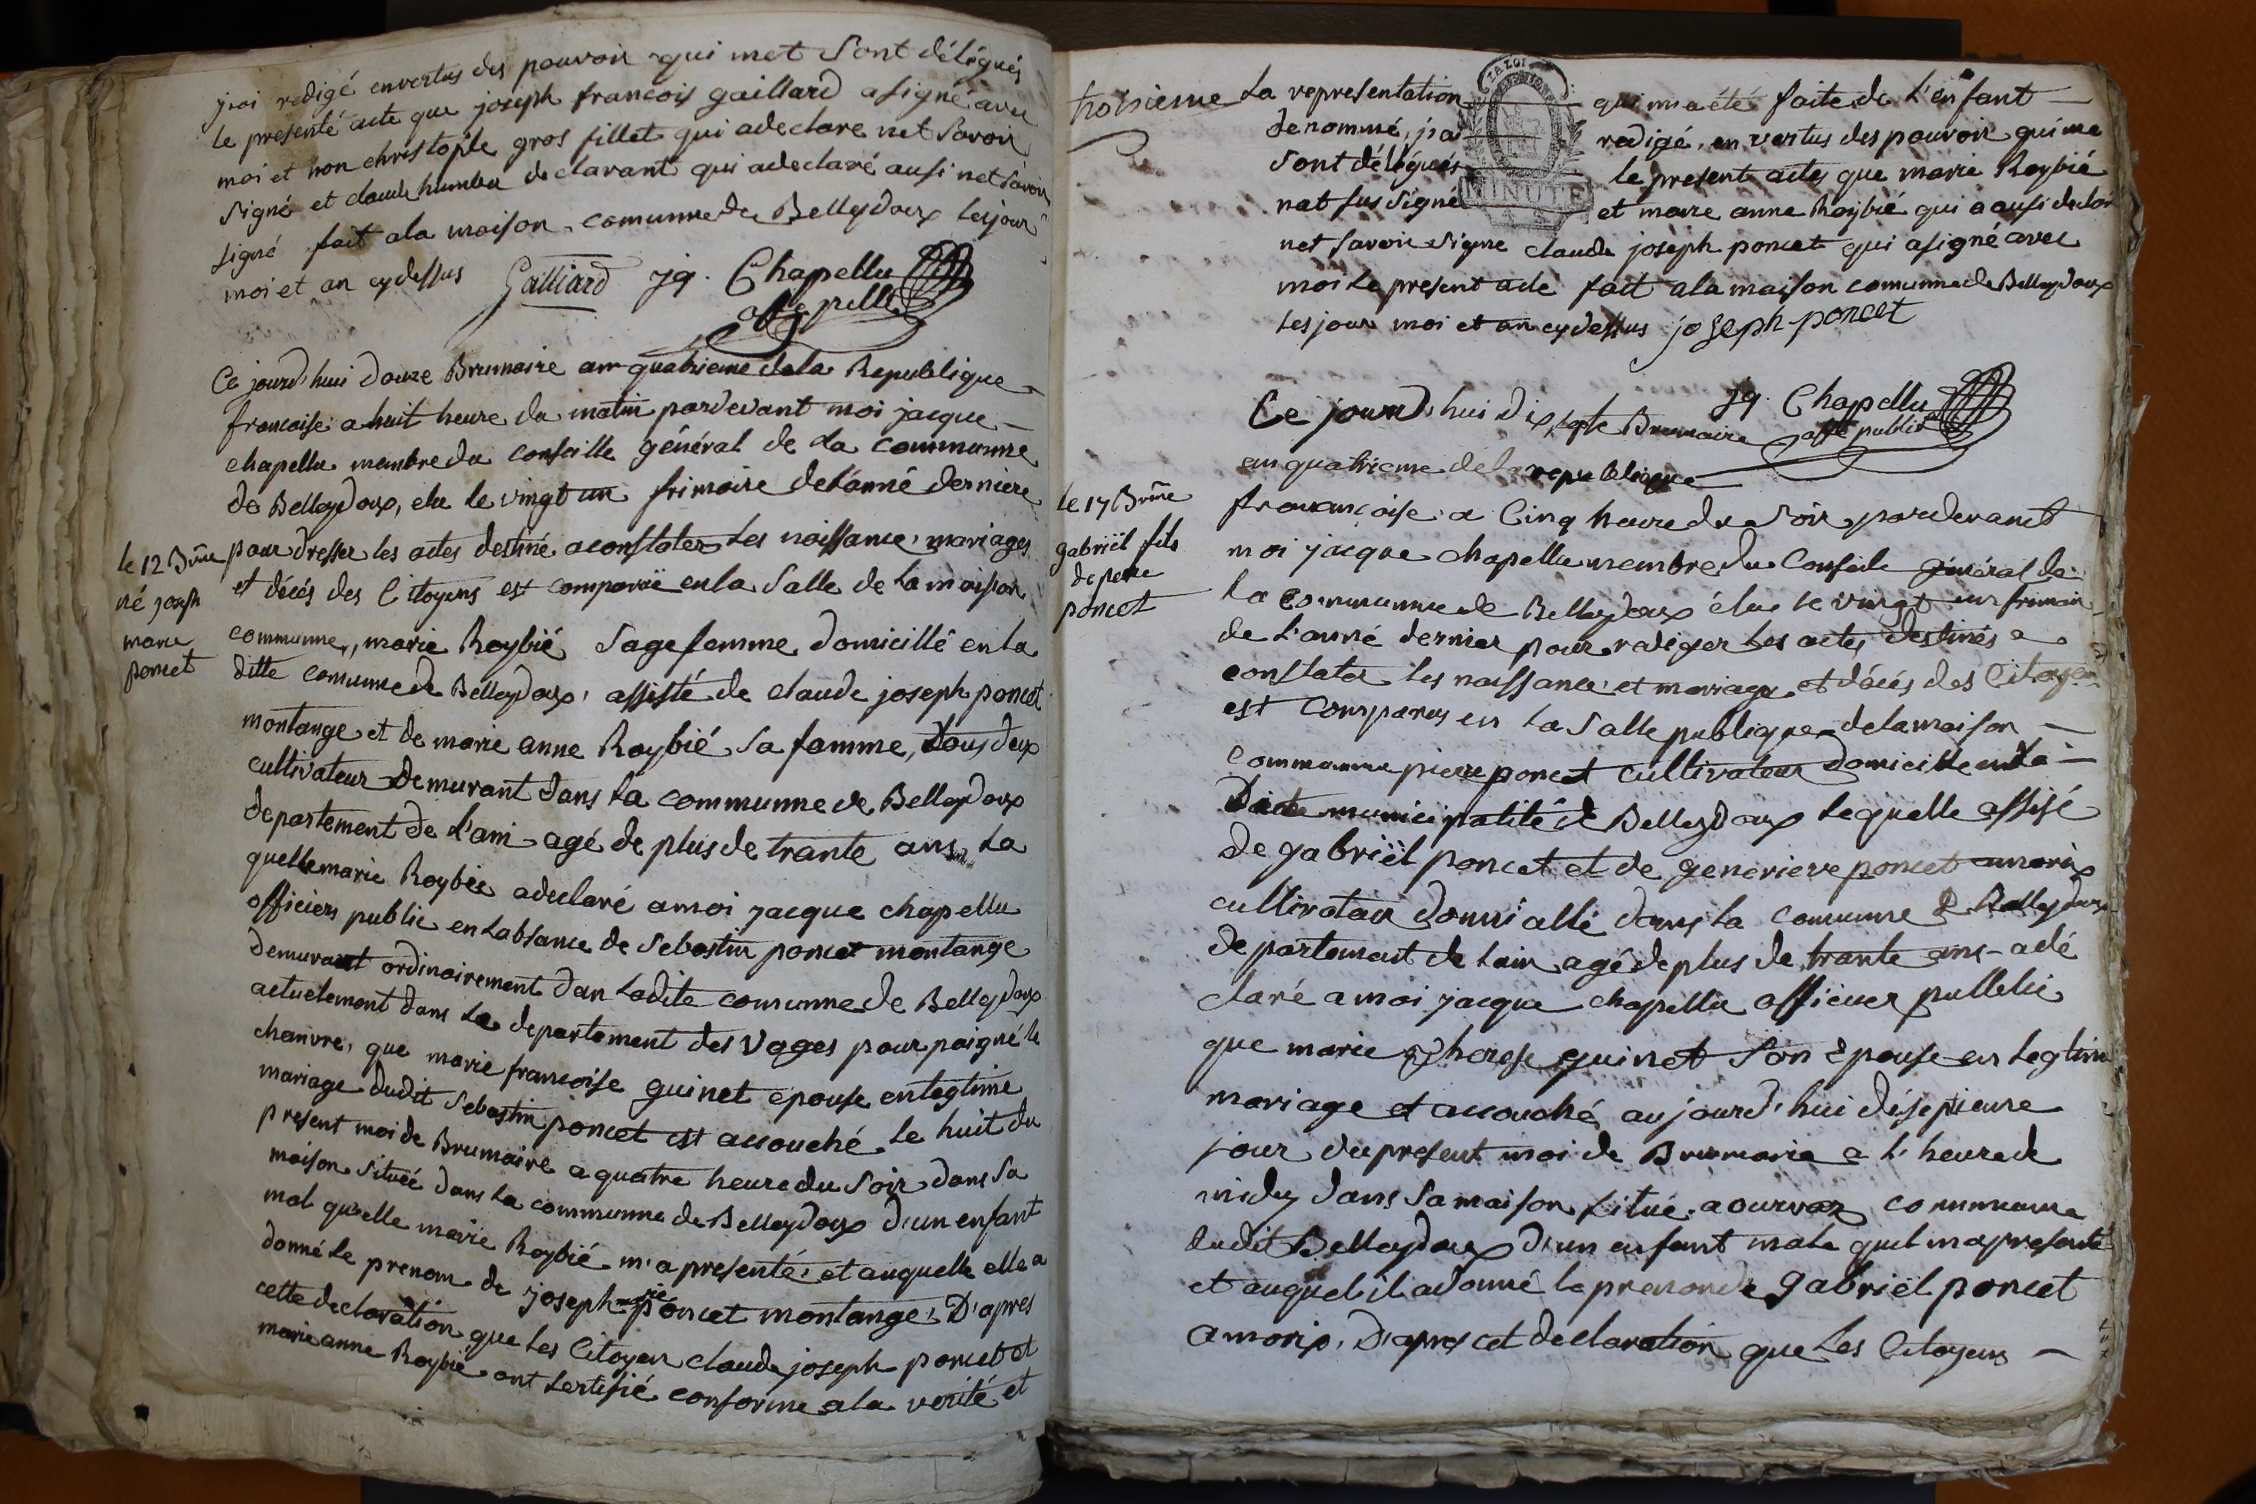 j'ai redigé envertus des pouvoir qui met Sont délégués
le presenté acte que joseph francois gaillard a signé avec
moi et non christople gros fillet qui adeclare net Savoir
Signé et claude humber declarant qui adeclaré ausi net Savoir
signé fait ala maison comunne de Belleydoux les jour
moi et an cydessus Gailliard jq. Chapellu
Ce jourd'hui douze Brumaire an quatrieme dela Republique
francaise a huit heure du matin pardevant moi jacque
chapellu menbre du conseille général de la communne
de Belleydoux, elu le vingt un frimaire de l'anné derniere
pour dresser les actes destiné a constater les naissance, mariages
et décés des Citoyens est comparüe en la Salle de la maison
communne, marie Roybié Sage femme domicillé en la
ditte comunne de Belleydoux, assisté de claude joseph poncet
montange et de marie anne Roybié sa famme, tous deux
cultivateur demurant dans la communne de Belleydoux
departement de l'ain agé de plus de trante ans, la
quelle marie Roybié adeclaré amoi jacque chapellu
officiers public en labsance de Sebastin poncet montange
demurant ordinairement dan ladite comunne de Belleydoux
actuelement dans le departement des Voges pour paigné le
chanvre, que marie francoise guinet epouse en legtime
mariage dudit Sebastin poncet est accouché le huit du
present moi de Brumaire a quatre heure du Soir dans Sa
maison Située dans la communne de Belleydoux d'un enfant
mal qu'elle marie Roybié m'a presenté, et auquelle elle a
donné le prenom de joseph marie poncet montange, D'apres
cette declaration que les Citoyen claude joseph poncet et
marie anne Roybié ont Certifié conforme ala verité et
le 12 Bre
né joseph
marie
poncet
troisieme
La representation qui m'a été faite de l'enfant
denommé, j'ai redigé, en vertus des pouvoir qui me
Sont délégués le present actes que marie Roybié
nat sus Signé et marie anne Roybié qui a ausi declaré
net Savoir Signe claude joseph poncet qui a signé avec
moi le present acte fait ala maison comunne de Belleydoux
les jour moi et an cydessus joseph poncet
LA LOI
MINUTE
jq. Chapellu
offe public
Ce jourd'hui dix sept Brumaire
an quatrieme de la republique
francaise a Cinq heure du Soir pardevant
moi jacque chapellu membre du Conseile général de
la communne de Belleydoux élu le vingt un frimair
de l'anné dernier pour rediger les actes destinés a
constater les naissance et mariage et décés des Citoyen
est comparus en la Salle publique de la maison
communne pierre poncet cultivateur domicille en la
Dite municipalité de Belleydoux lequelle assisé
de gabriël poncet et de genevieve poncet amorix
cultivateur domicillé dans la comunne de Belleydoux
departement de lain agé de plus de trante ans adé
claré a moi jacque chapellu officier publlic
que marie therese guinet Son Epouse en legtime
mariage et accouché aujourd'hui diseptieme
jour du present moi de Brumaire a l'heure de
midy dans Sa maison situé a ourvaz communne
dudit Belleydoux d'un enfant male quil ma presenté
et auquel il adonné le prenon de gabriël poncet
amorix, D'apres cet declaration que les Citoyens
le 17 Bre
gabriël fils
de pierre
poncet